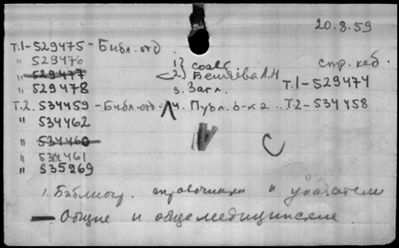 20.8.59
Т.1-529475 - Библ. отд.
" 529476 1) соавт. спр. каб.
" 529477 2) Беляева Л.Н
" 529478 3. Загл. Т.1-529474
Т.2. 534459 - Библ. отд. 4. Публ. б-ка Т.2-534458
" 534462
" 534460
" 534461
" 535269
С
1. Библиогр. справочники и указатели
— Общие и общемедицинские